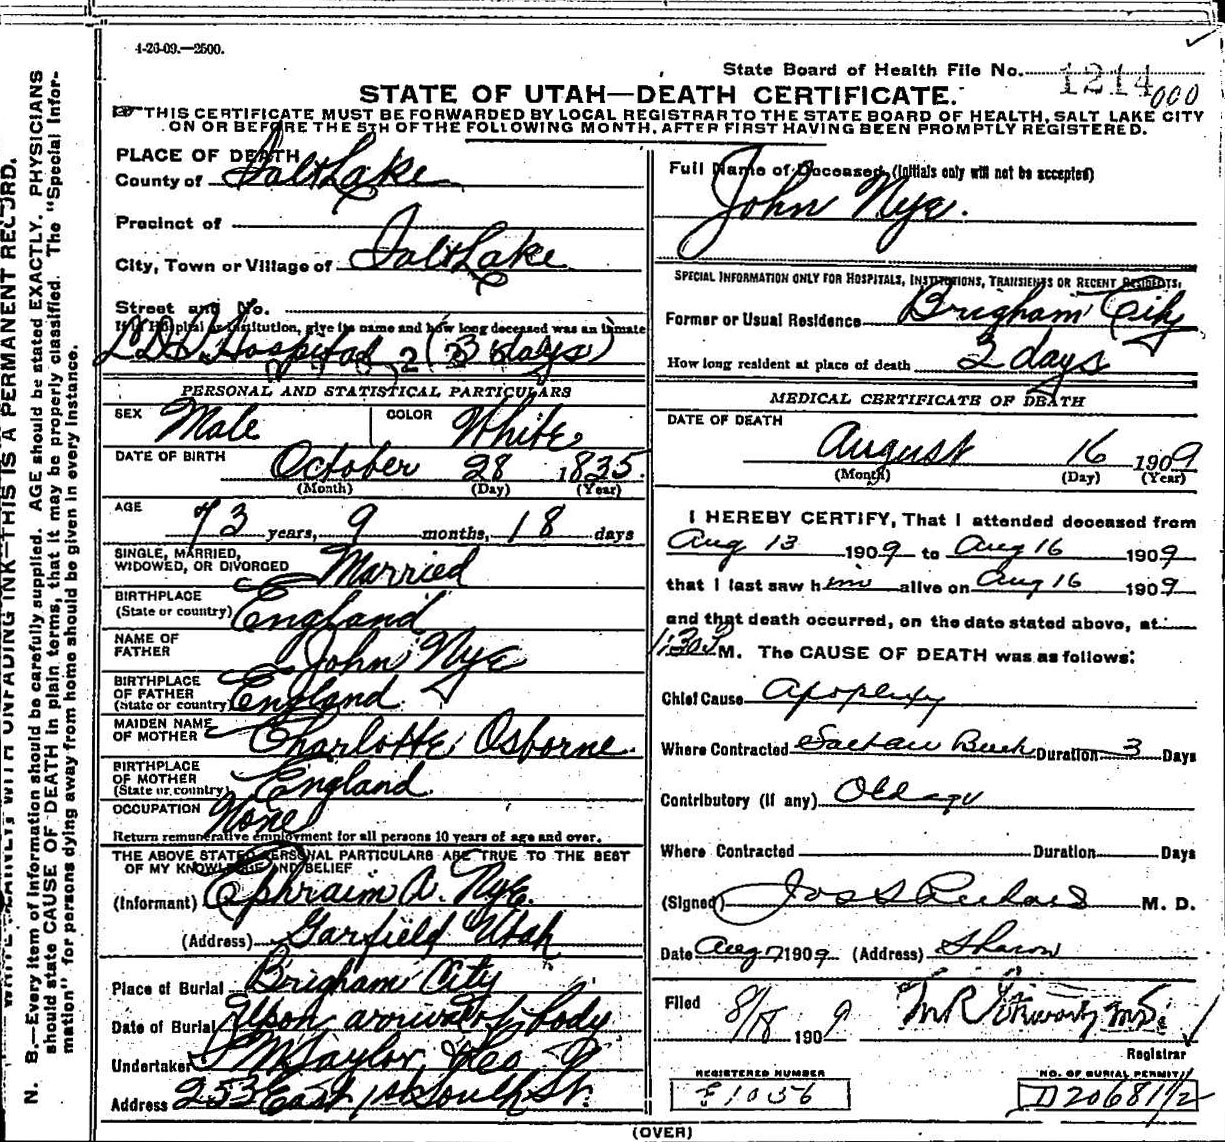 1-26-09.—2500.
State Board of Health File No. 1214 000
STATE OF UTAH—DEATH CERTIFICATE.
THIS CERTIFICATE MUST BE FORWARDED BY LOCAL REGISTRAR TO THE STATE BOARD OF HEALTH, SALT LAKE CITY
ON OR BEFORE THE 5TH OF THE FOLLOWING MONTH, AFTER FIRST HAVING BEEN PROMPTLY REGISTERED.
PLACE OF DEATH
County of Salt Lake
Precinct of
City, Town or Village of Salt Lake
Street and No.
If in Hospital or Institution, give its name and how long deceased was an inmate
L D S Hospital (3 days)
PERSONAL AND STATISTICAL PARTICULARS
SEX Male COLOR White
DATE OF BIRTH October 28 1835
(Month) (Day) (Year)
AGE 73 years, 9 months, 18 days
SINGLE, MARRIED,
WIDOWED, OR DIVORCED Married
BIRTHPLACE
(State or country) England
NAME OF
FATHER John Nye
BIRTHPLACE
OF FATHER
(State or country) England
MAIDEN NAME
OF MOTHER Charlotte Osborne.
BIRTHPLACE
OF MOTHER
(State or country) England
OCCUPATION None
Return remunerative employment for all persons 10 years of age and over.
THE ABOVE STATED PERSONAL PARTICULARS ARE TRUE TO THE BEST
OF MY KNOWLEDGE AND BELIEF
(Informant) Ephraim A. Nye.
(Address) Garfield Utah
Place of Burial Brigham City
Date of Burial Upon arrival of body
Undertaker S M Taylor &
Address 253 East 1st South St.
Full Name of Deceased (Initials only will not be accepted)
John Nye.
SPECIAL INFORMATION ONLY FOR HOSPITALS, INSTITUTIONS, TRANSIENTS OR RECENT RESIDENTS.
Former or Usual Residence Brigham City
How long resident at place of death 3 days
MEDICAL CERTIFICATE OF DEATH
DATE OF DEATH
August 16 1909
(Month) (Day) (Year)
I HEREBY CERTIFY, That I attended deceased from
Aug 13 1909 to Aug 16 1909
that I last saw him alive on Aug 16 1909
and that death occurred, on the date stated above, at
1:30 M. The CAUSE OF DEATH was as follows:
Chief Cause Apoplexy
Where Contracted Duration 3 Days
Contributory (if any) Old age
Where Contracted Duration Days
(Signed) Jos S Richards M. D.
Date Aug 17 1909 (Address) Sharon
Filed 8/18 1909
Registrar
REGISTERED NUMBER
E1056
NO. OF BURIAL PERMIT
D20681 1/2
(OVER)
WRITE PLAINLY WITH UNFADING INK—THIS IS A PERMANENT RECORD.
N. B.—Every item of information should be carefully supplied. AGE should be stated EXACTLY. PHYSICIANS
should state CAUSE OF DEATH in plain terms, that it may be properly classified. The "Special Infor-
mation" for persons dying away from home should be given in every instance.